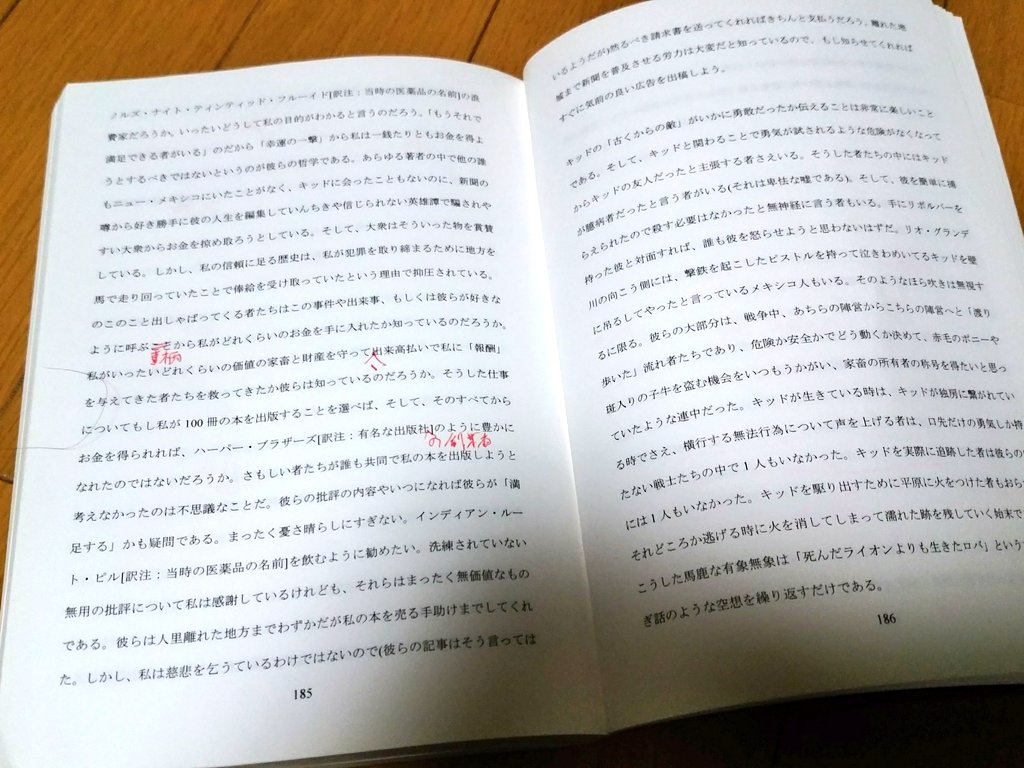 クルズ・ナイト・ティンティッド・フルーイド[訳注：当時の医薬品の名前]の浪
費家だろうか。いったいどうして私の目的がわかると言うのだろう。「もうそれで
満足できる者がいる」のだから「幸運の一撃」から私は一銭たりともお金を得よ
うとするべきではないというのが彼らの哲学である。あらゆる著者の中で他の誰
もニュー・メキシコにいたことがなく、キッドに会ったこともないのに、新聞の
噂から好き勝手に彼の人生を編集していんちきや信じられない英雄譚で騙されや
すい大衆からお金を掠め取ろうとしている。そして、大衆はそういった物を賞賛
している。しかし、私の信頼に足る歴史は、私が犯罪を取り締まるために地方を
馬で走り回っていたことで俸給を受け取っていたという理由で抑圧されている。
のこのこと出しゃばってくる者たちはこの事件や出来事、もしくは彼らが好きな
ように呼ぶことから私がどれくらいのお金を手に入れたか知っているのだろうか。
事柄
私がいったいどれくらいの価値の家畜と財産を守って出来高払いで私に「報酬」
を与えてきた者たちを救ってきたか彼らは知っているのだろうか。そうした仕事
についてもし私が 100 冊の本を出版することを選べば、そして、そのすべてから
お金を得られれば、ハーパー・ブラザーズ[訳注：有名な出版社]のように豊かに
の創業者
なれたのではないだろうか。さもしい者たちが誰も共同で私の本を出版しようと
考えなかったのは不思議なことだ。彼らの批評の内容やいつになれば彼らが「満
足する」かも疑問である。まったく憂さ晴らしにすぎない。インディアン・ルー
ト・ピル[訳注：当時の医薬品の名前]を飲むように勧めたい。洗練されていない
無用の批評について私は感謝しているけれども、それらはまったく無価値なもの
である。彼らは人里離れた地方までわずかだが私の本を売る手助けまでしてくれ
た。しかし、私は慈悲を乞うているわけではないので(彼らの記事はそう言っては
185
いるようだが)然るべき請求書を送ってくれればきちんと支払うだろう。離れた地
域まで新聞を普及させる労力は大変だと知っているので、もし知らせてくれれば
すぐに気前の良い広告を出稿しよう。
キッドの「古くからの敵」がいかに勇敢だったか伝えることは非常に楽しいこと
である。そして、キッドと関わることで勇気が試されるような危険がなくなって
からキッドの友人だったと主張する者さえいる。そうした者たちの中にはキッド
が臆病者だったと言う者がいる(それは卑怯な嘘である)。そして、彼を簡単に捕
らえられたので殺す必要はなかったと無神経に言う者もいる。手にリボルバーを
持った彼と対面すれば、誰も彼を怒らせようと思わないはずだ。リオ・グランデ
川の向こう側には、撃鉄を起こしたピストルを持って泣きわめいてるキッドを壁
に吊るしてやったと言っているメキシコ人もいる。そのようなほら吹きは無視す
るに限る。彼らの大部分は、戦争中、あちらの陣営からこちらの陣営へと「渡り
歩いた」流れ者たちであり、危険か安全かでどう動くか決めて、赤毛のポニーや
斑入りの子牛を盗む機会をいつもうかがい、家畜の所有者の称号を得たいと思っ
ていたような連中だった。キッドが生きている時は、キッドが独房に繋がれてい
る時でさえ、横行する無法行為について声を上げる者は、口先だけの勇気しか持
たない戦士たちの中で 1 人もいなかった。キッドを実際に追跡した者は彼らの
には 1 人もいなかった。キッドを駆り出すために平原に火をつけた者もおら
それどころか逃げる時に火を消してしまって濡れた跡を残していく始末で
こうした馬鹿な有象無象は「死んだライオンよりも生きたロバ」という
ぎ話のような空想を繰り返すだけである。
186